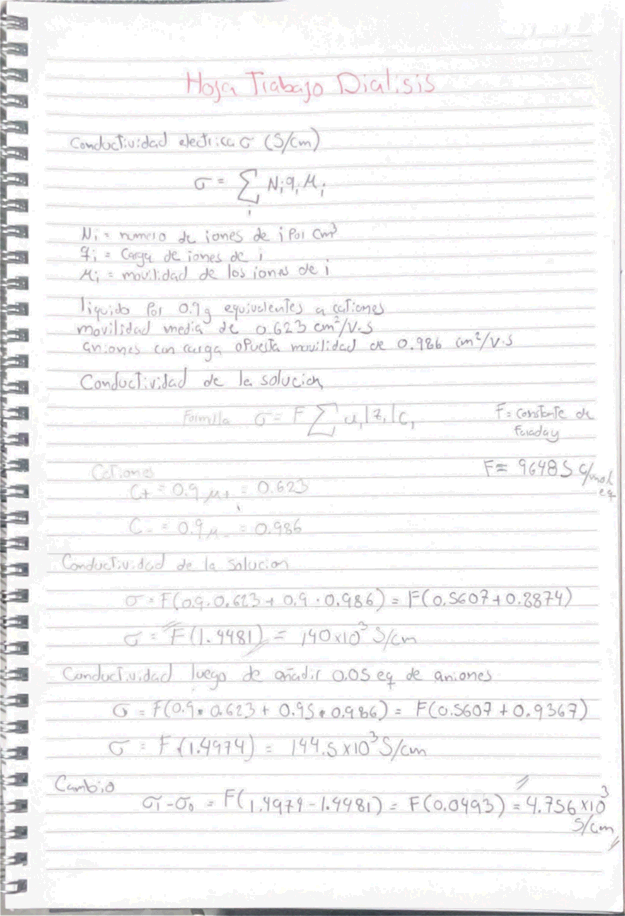 Hoja Trabajo Dialisis
Conductividad electrica σ (S/cm)
σ = ∑ Nᵢ qᵢ Mᵢ
i
Ni = numero de iones de i por cm³
qi = Carga de iones de i
Mi = movilidad de los iones de i
liquido por 0.9g equivalentes a cationes
movilidad media de 0.623 cm²/V.s
aniones con carga opuesta movilidad de 0.986 cm²/V.s
Conductividad de la solucion
Formula σ = F ∑ uᵢ|Zᵢ|Cᵢ F = Constante de Faraday
F = 96485 C/mol eq
Cationes
C+ = 0.9 μ+ = 0.623
C- = 0.9 μ- = 0.986
Conductividad de la solucion
σ = F(0.9 · 0.623 + 0.9 · 0.986) = F(0.5607 + 0.8874)
σ = F(1.4481) = 140x10³ S/cm
Conductividad luego de añadir 0.05 eq de aniones
σ = F(0.9 * 0.623 + 0.95 * 0.986) = F(0.5607 + 0.9367)
σ = F(1.4974) = 144.5x10³ S/cm
Cambio
σ₁ - σ₀ = F(1.4974 - 1.4481) = F(0.0493) = 4.756 x10³ S/cm